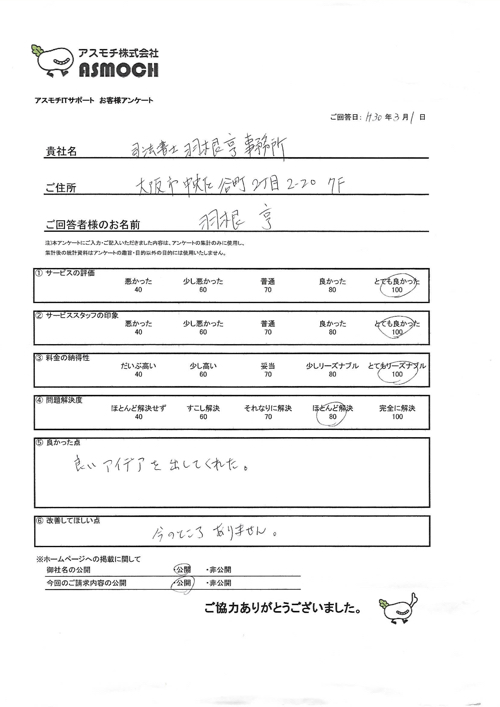 アスモチ株式会社
ASMOCH
アスモチITサポート お客様アンケート
ご回答日: H30年3月1日
貴社名 司法書士 羽根亨事務所
ご住所 大阪市中央区谷町2丁目2-20 7F
ご回答者様のお名前 羽根 亨
注)本アンケートにご入力・ご記入いただきました内容は、アンケートの集計のみに使用し、
集計後の統計資料はアンケートの趣旨・目的以外の目的には使用いたしません。
① サービスの評価
悪かった 少し悪かった 普通 良かった とても良かった
40 60 70 80 100
② サービススタッフの印象
悪かった 少し悪かった 普通 良かった とても良かった
40 60 70 80 100
③ 料金の納得性
だいぶ高い 少し高い 妥当 少しリーズナブル とてもリーズナブル
40 60 70 80 100
④ 問題解決度
ほとんど解決せず すこし解決 それなりに解決 ほとんど解決 完全に解決
40 60 70 80 100
⑤ 良かった点
良いアイデアを出してくれた。
⑥ 改善してほしい点
今のところありません。
※ホームページへの掲載に関して
御社名の公開 ・公開 ・非公開
今回のご請求内容の公開 ・公開 ・非公開
ご協力ありがとうございました。